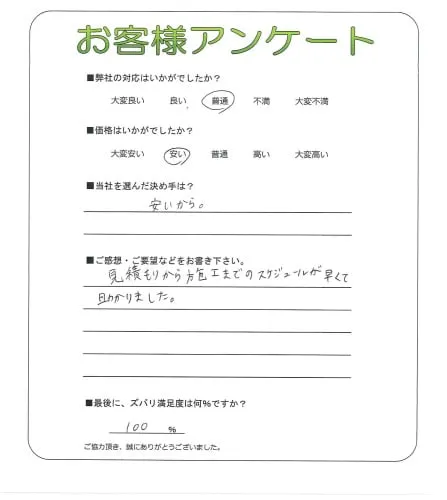 お客様アンケート
■弊社の対応はいかがでしたか？
大変良い 良い 普通 不満 大変不満
■価格はいかがでしたか？
大変安い 安い 普通 高い 大変高い
■当社を選んだ決め手は？
安いから。
■ご感想・ご要望などをお書き下さい。
見積もりから施工までのスケジュールが早くて
助かりました。
■最後に、ズバリ満足度は何％ですか？
100 ％
ご協力頂き、誠にありがとうございました。